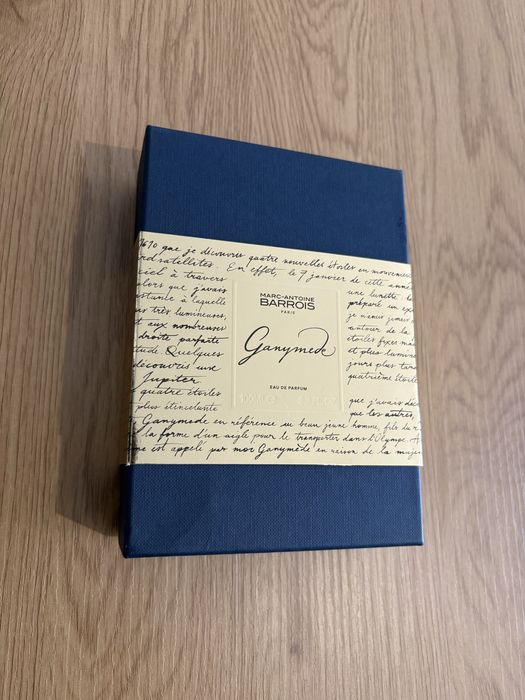 1610 que je découvres quatre nouvelles étoiles en mouvement
satellites. En effet, le 7 janvier de cette
ciel à travers
alors que j'avais
distance à laquelle
us très lumineuses,
t aux nombreuses
droite parfaite
tude. Quelques
découvris une
Jupiter
quatre étoiles
plus étincelante
MARC-ANTOINE
BARROIS
PARIS
Ganymede
EAU DE PARFUM
une lunette.
préparé un
je n'avais jamais
autour de la
étoiles fixes
et plus
jours plus
quatrième étoile
que j'avais
que les autres,
Ganymede en référence au beau jeune homme, fils du
la forme d'un aigle pour le transporter dans l'Olympe.
est appelé par moi Ganymède en raison de la